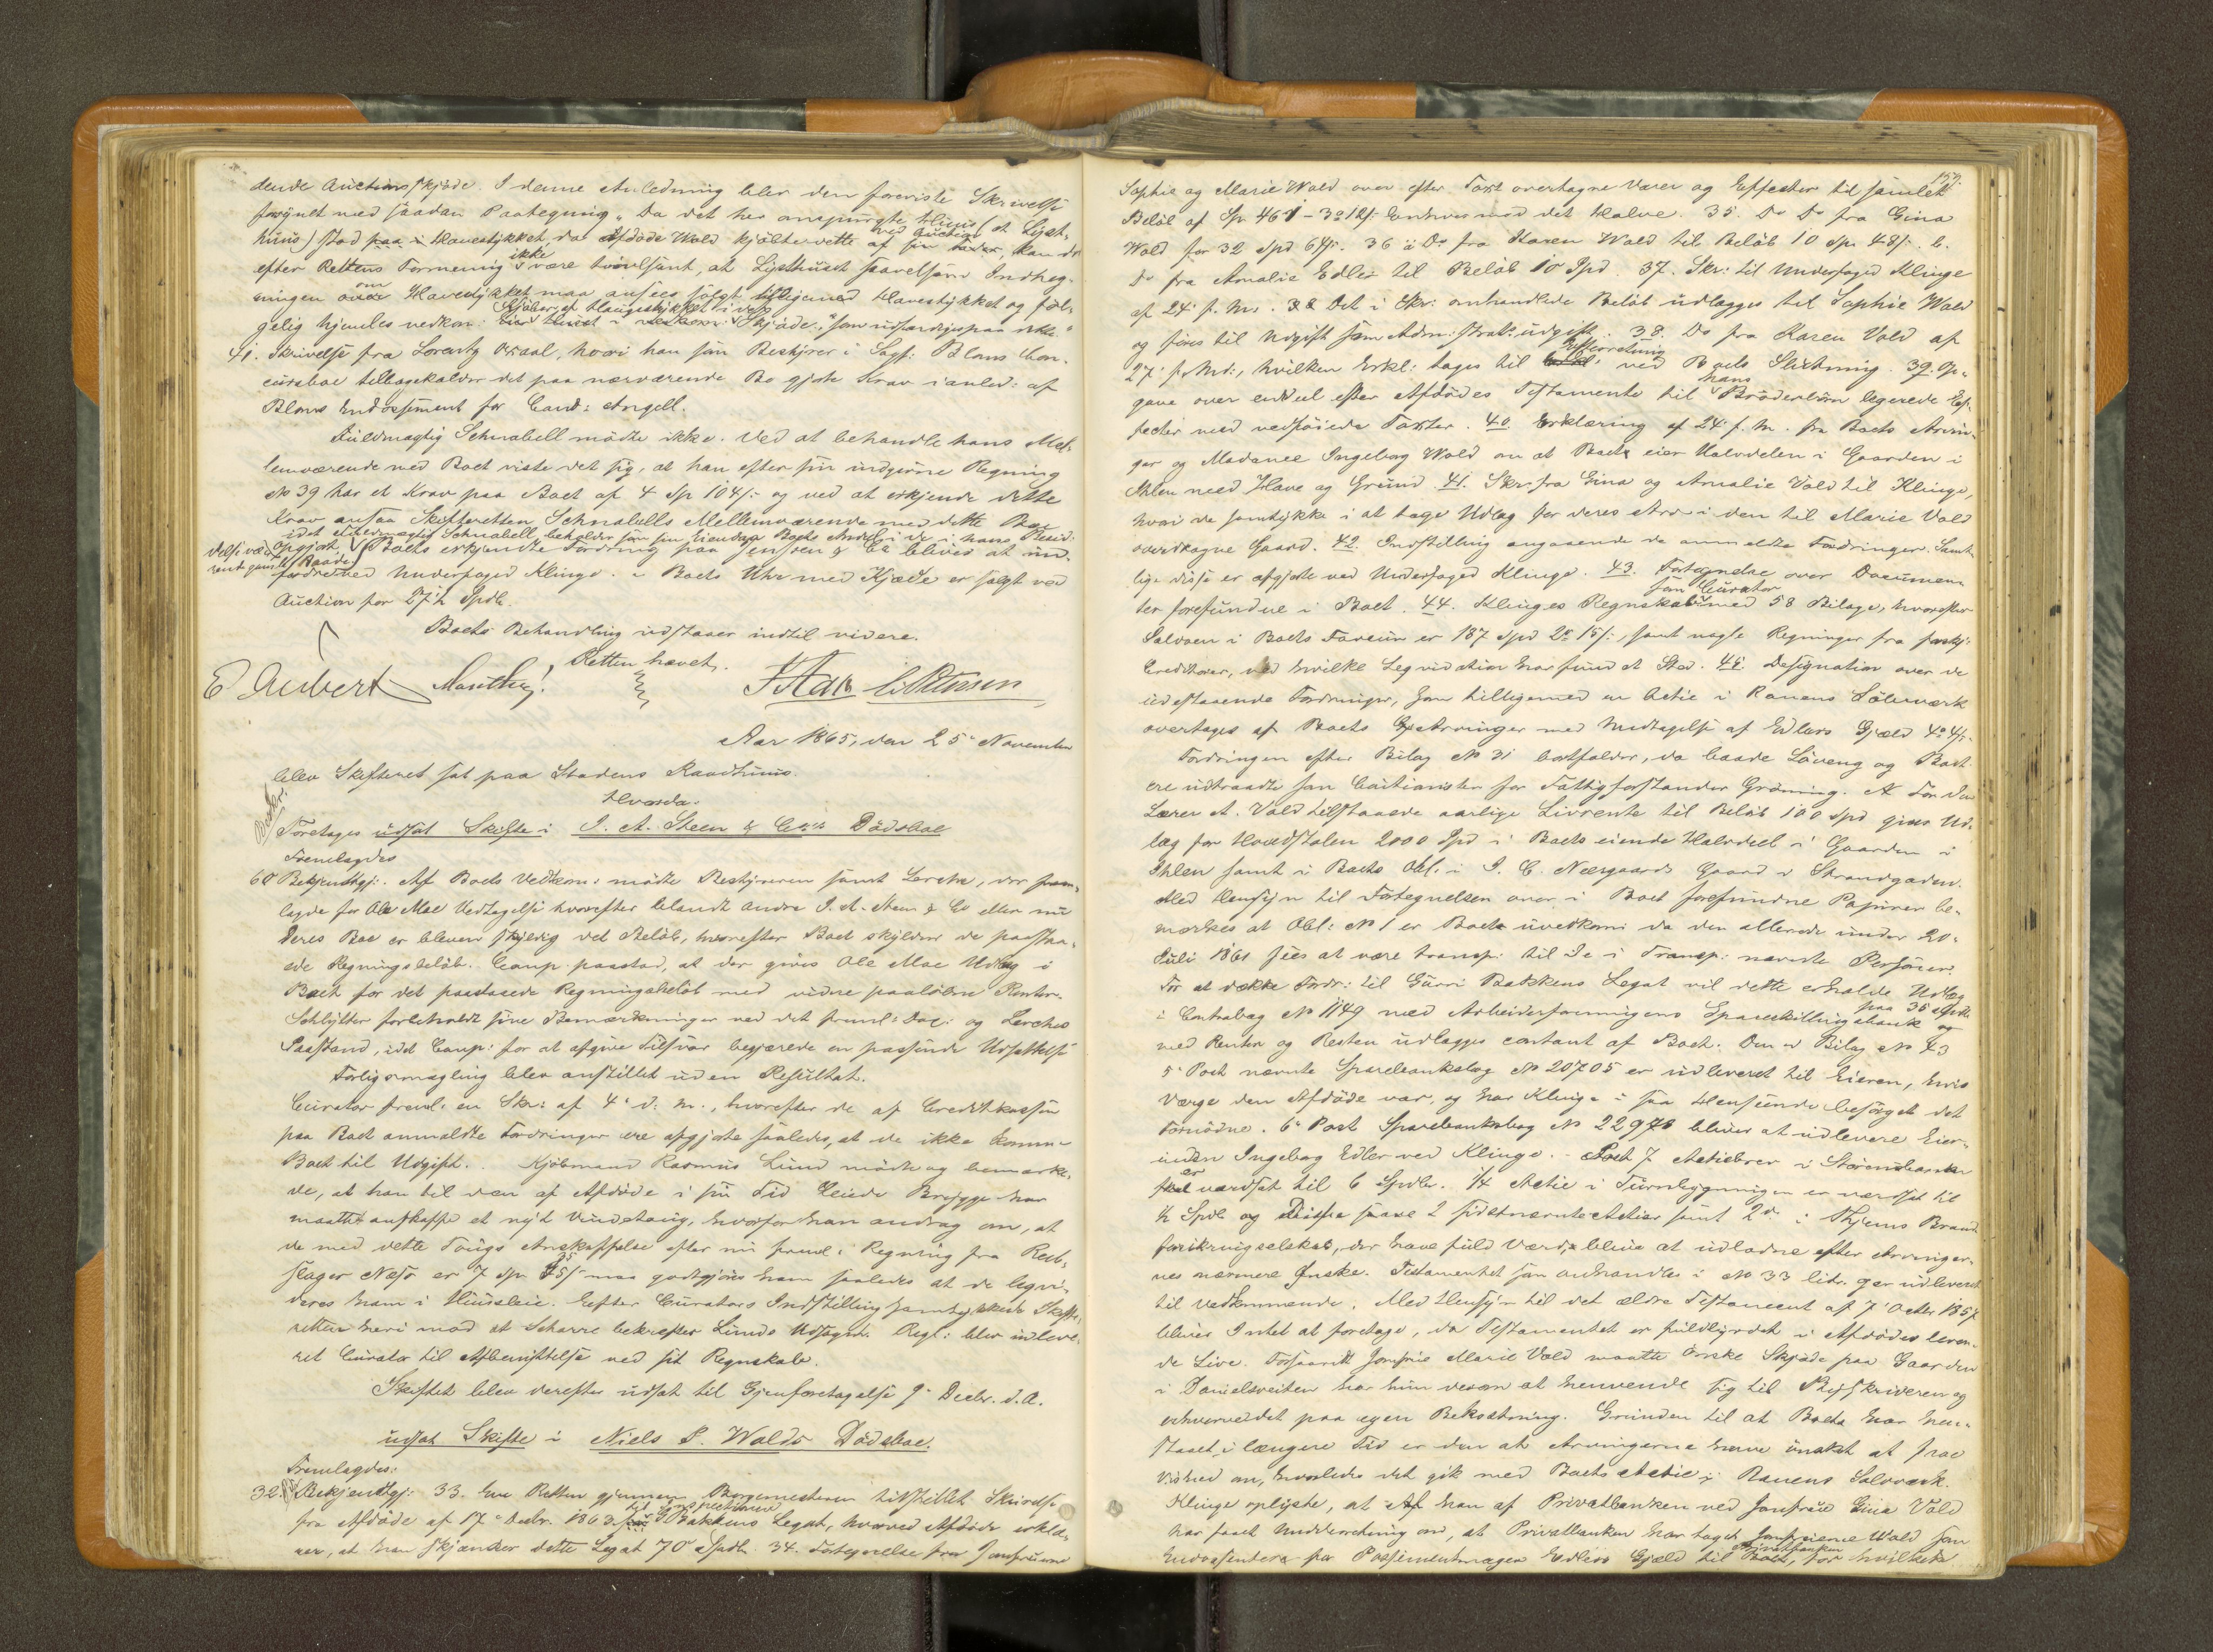 dende Auctionsskjøde. I denne Anledning blev den foreviste Skrivelse
forsynet med saadan Paategning: "Da det her omspurgte Huus (et Lyst-
huus) stod paa Havestykket, da Afdøde Wold kjøbte dette ved Auction, kan det
efter Rettens Formening ikke være tvivlsomt, at Lysthuset saavelsom Indheg-
ningen om Havestykket maa ansees solgt tilligemed Havestykket og føl-
gelig hjemles vedkom: Kjøber af Havestykket i vedk: Skjøde, som udfærdiges paa dette."
41. Skrivelse fra Lorentz Owaal, hvori han som Bestyrer i Sagf: Bloms Con-
cursboe tilbagekalder det paa nærværende Bo gjorte Krav i anled: af
Bloms Endossement for Cand: Angell.
Fuldmægtig Schnabell mødte ikke. Ved at behandle hans Mel-
lemværende med Boet viste det sig, at han efter sin indgivne Regning
No 39 har et Krav paa Boet af 4 Sp 104 s og ved at erkjende dette
Krav ansaa Skifteretten Schnabells Mellemværende med dette Bo
opgjort, idet Fuldmægtig Schnabell beholder som sin Eiendom Boets Andel i de i hans
Boets erkjendte Fordring paa Jenssen & Co bliver at ind-
fordre ved Undersaged Klinge. - Boets Uhr med Kjæde er solgt ved
Auction for 27½ Spdlr.
Boets Behandling udstaaer indtil videre.
Retten hævet.
E Aubert
Aar 1865, den 25de November
blev Skifteret sat paa Stadens Raadhuus.
Hvorda.
Foretoges udsat Skifte i J. A. Steen & Co's Dødsboe
Fremlagdes
60 Bekjendtgj:. Af Boets Vedkom: mødte Bestyreren samt Lerche, der frem-
lagde for Ole Moe Vedtagelse hvorefter blandt andre J. A. Steen & Co eller nu
deres Boe er bleven skyldig det Beløb, hvorefter Boet skylder de paastaa-
ede Regningsbeløb. Comp. paastod, at der gives Ole Moe Udlæg i
Boet for det paastaaede Regningsbeløb med videre paaløbne Renter.
Schlytter forbeholdt sine Bemærkninger ved det freml: Doc: og Lerches
Paastand, idet Comp: for at afgive Tilsvar begjærede en passende Udsættelse
Forligsmægling blev anstillet uden Resultat.
Curator freml: en Skr: af 4de d: M., hvorefter de af Creditkassen
paa Boet anmeldte Fordringer ere afgjorte saaledes, at de ikke komme
Boet til Udgift. Kjøbmand Rasmus Lund mødte og bemærke-
de, at han til den af Afdøde i sin Tid leiede Brygge har
maattet anskaffe et nyt Vindetoug, hvorfor han androg om, at
de med dette Tougs Anskaffelse efter nu freml: Regning fra Reeb-
slager Næss er 7 Sp. 35 s maa godtgjøres ham saaledes at de liqvi-
deres ham i Huusleie. Efter Curators Indstilling samtykkede Skifte-
retten heri mod at Scharre bekræfter Lunds Udsagn. Regn: blev indleve-
ret Curator til Afbenyttelse ved sit Regnskab.
Skiftet blev derefter udsat til Gjenforetagelse 9de Decbr. d. A.
udsat Skifte i Niels P. Wolds Dødsboe.
Fremlagdes:
32. Bekjendtgj: 33. Een Retten gjennem Borgemesteren tilstillet Skrivelse
fra Afdøde af 17de Decbr. 1863 til Inspectionen for G. Bakkens Legat, hvorved Afdøde erklæ-
rer, at han skjænker dette Legat 70 Spdlr. 34. Fortegnelse fra Jomfruerne
159.
Sophie og Marie Wold over efter Taxt overtagne Varer og Effecter til samlet
Beløb af Sp. 461 - 3 o 12 s. Endvidere med det Halve. 35. Do Do fra Gina
Wold for 32 Spd 64 s. 36 a Do fra Karen Wold til Beløb 10 Spd 48 s. b.
Do fra Amalie Edler til Beløb 10 Spd. 37. Skr: til Undersaged Klinge
af 24de f. M. Det i Skr: omhandlede Beløb udlægges til Sophie Wold
og føres til Udgift som Adm:strat: udgift. 38. Do fra Karen Vold af
27de f. Md:, hvilken Erkl: tages til Efterretning ved Boets Slutning. 39. Op-
gave over endeel efter Afdødes Testamente til hans Brøderbørn legerede Ef-
fecter med vedføiede Taxter. 40. Erklæring af 24de f. M. fra Boets Arvin-
ger og Madame Ingeborg Wold om at Boet eier Halvdelen i Gaarden i
Ihlen med Have og Grund. 41. Skr: fra Gina og Amalie Vold til Klinge,
hvori de samtykke i at tage Udlæg for deres Arv i den til Marie Vold
overdragne Gaard. 42. Indstilling angaaende de anmeldte Fordringer. Samt-
lige disse er afgjorte ved Undersaged Klinge. 43. Fortegnelse over Documen-
ter forefundne i Boet. 44. Klinges Regnskab som Curator med 58 Bilage, hvorefter
Saldoen i Boets Faveur er 187 Spd 2 o 15 s, samt nogle Regninger fra forskj:
Creditorer, ved hvilke Leqvidation har fundet Sted. 45. Designation over de
udestaaende Fordringer, som tilligemed en Actie i Ranens Sølvværk
overtages af Boets Arvinger med Undtagelse af Edlers Gjæld 4 o 4 s.
Fordringen efter Bilag No 31 bortfalder, da baade Løveng og Boet
ere udtraadte som Cautionister for Fattigforstander Grønning. For den
Lærer A. Vold tilstaaede aarlige Livrente til Beløb 100 Spd gives Ud-
læg for Hovedstolen 2000 Spd i Boets eiende Halvdeel i Gaarden i
Ihlen samt i Boets Obl. i J. C. Neergaards Gaard i Strandgaden.
Med Hensyn til Fortegnelsen over i Boet forefundne Papirer be-
mærkes at Obl: No 1 er Boet uvedkom: da den allerede under 20de
Juli 1861 sees at være transp: til de i Transp: nævnte Personer.
For at dække Fordr: til Gurri Bakkens Legat vil dette erholde Udlæg
i Contrabog No 1149 med Arbeiderforeningens Spareskillingsbank paa 35 Spd og
med Renter og Resten udlægges contant af Boet. Den i Bilag No 43
5te Post nævnte Sparebanksbog No 20705 er udleveret til Eieren, hvis
Værge den Afdøde var, og har Klinge i saa Henseende besørget det
Fornødne. 6te Post Sparebanksbog No 22976 bliver at udlevere Eier-
inden Ingeborg Edler ved Klinge. - Post 7 Actiebrev i Størensbanen
er værdsat til 6 Spdlr. 1/4 Actie i Turnbygningen er værdsat til
½ Spdl og disse samt 2 sidstnævnte Actier samt 2 do i Thjems Brand-
forsikringsselskab, der have fuld Værdi, blive at udlodne efter Arvinger-
nes nærmere Ønske. Testamentet som omhandles i No 33 litr. g er udleveret
til Vedkommende. Med Hensyn til det ældre Testament af 7de Octbr 1857
bliver Intet at foretage, da Testamentet er fuldbyrdet i Afdødes leven-
de Live. Forsaavidt Jomfrue Marie Vold maatte ønske Skjøde paa Gaarden
i Danielsveiten har hun desom at henvende sig til Byskriveren og
erhverve det paa egen Bekostning. Grunden til at Boet har hen-
staaet i længere Tid er den at Arvingerne have ønsket at faae
Vished om, hvorledes det gik med Boets Actie i Ranens Sølvværk.
Klinge oplyste, at han af Privatbanken ved Jomfrue Gina Vold
har faaet Underretning om, at Privatbanken har taget Jomfruerne Wold som
Endossenter for Possementmager Edlers Gjæld til Privatbanken, for hvilket